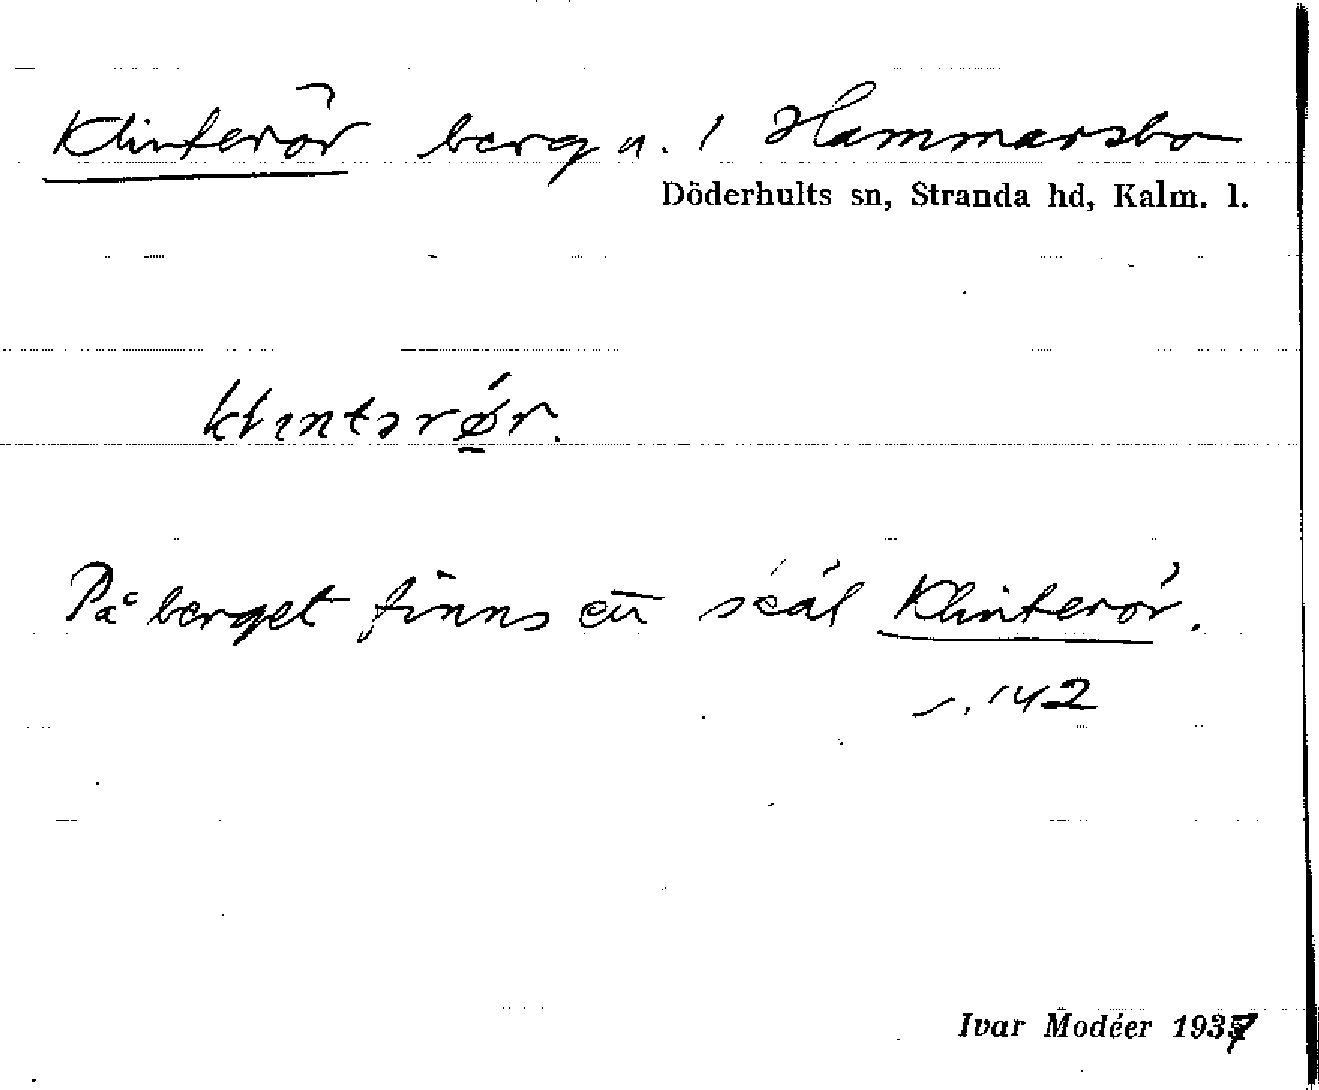 Klinterör berg n. 1 Hammarsbo
Döderhults sn, Stranda hd, Kalm. l.
klıntərǿ̱r.
På berget finns ett s.äål Klinterör.
s. 142
Ivar Modéer 1937